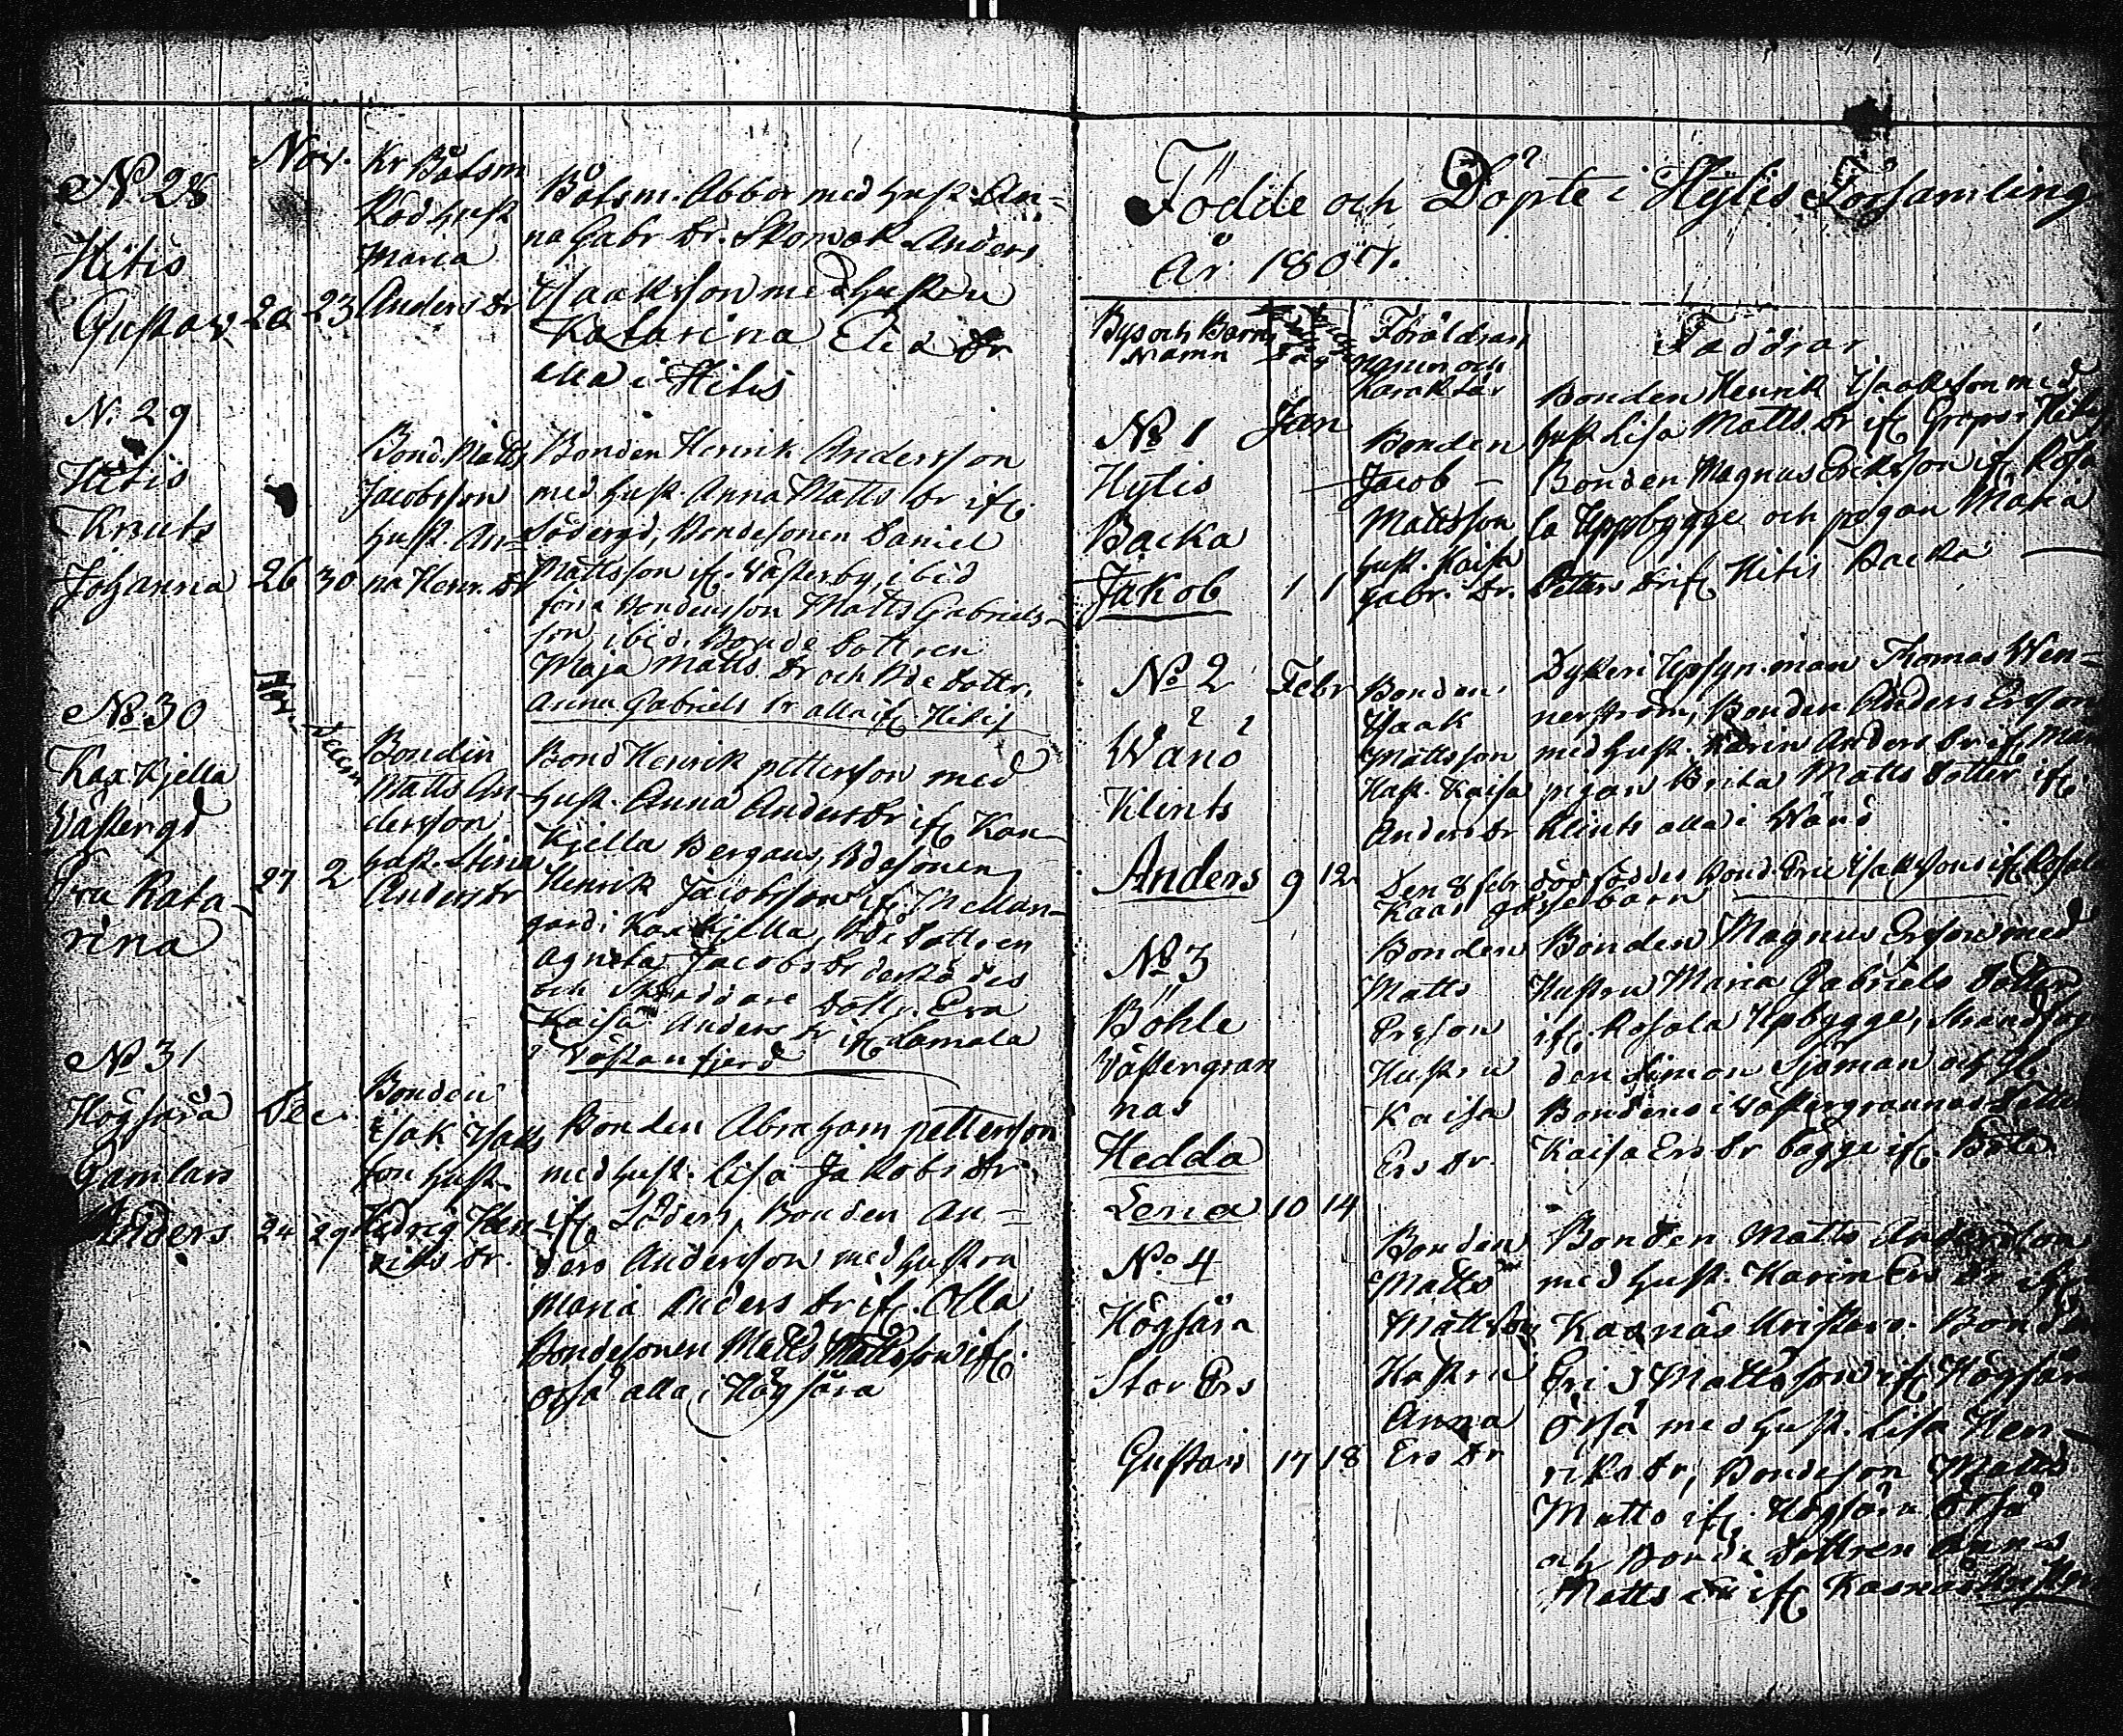 N 28
Hitis
Gustav
Nov.
20 23
Kr Båtsm
Röd hust
Maria
Anders Dr
Båtsm. Abbor med hust. An-
na Gabr Dr. Skomak Anders
Isaaksson med hustru
Katarina Elia Dr
alla i Hitis
N. 29
Hitis
Knuts
Johanna
26 30
Bond. Matts
Jacobsson
hust. An-
na Henr. Dr
Bonden Henrik Andersson
med hust. Anna Matts Dr ifr.
Södergd, Bondesonen Daniel
Mattsson ifr. Västerby, ibid
Bondeson Matts Gabriels-
son, ibid. Bonde Dottren
Maja Matts Dr och Bde Dottr.
Anna Gabriels Dr alla ifr. Hitis
No 30
Kaxkjella
Västergd
Eva Kata-
rina
Nov. Decem
27 2
Bonden
Matts An-
dersson
hust. Stina
Anders Dr
Bond Henrik petterson med
hust. Anna Anders Dr ifr Kax-
kjella Bergans, Bdesonen
Henrik Jacobsson ifr. Mellan-
gård i Kaxkjella, Bde Dottren
Agneta Jacobs Dr
och Dottr. Eva
Kaisa Anders Dr ifr Lamala
i Västanfjerd
No 31
Högsåra
Gamlars
Anders
Dec.
24 29
Bonden
Isak Isaks
son hust.
Hedvig Hen
riks Dr.
Bonden Abraham petterson
med hust. Lisa Jakobs Dr
ifr Söders, Bonden An-
ders Andersson med hustru
Maria Anders Dr ifr. Olla
Bondesonen Matts Mattsson ifr.
Örså alla i Högsåra
Födde och Döpte i Hytis Församling
År 1807.
Bys och Barns
Namn
Dag
Föräldrars
namn och
Karaktär
Faddrar
No 1
Hytis
Backa
Jakob
Jan
1 1
Bonden
Jacob
Mattsson
hust. Kaisa
Gabr. Dr.
Bonden Henrik Isaaksson med
hust Lisa Matts Dr ifr Hitis
Bonden Magnus Eriksson ifr Rosa
la Uppbygge och pigan Maria
Petters Dr ifr Hitis Backa
No 2
Wänö
Klints
Anders
Febr
9 12
Bonden
Isaak
Mattsson
Hust. Kaisa
Anders Dr
Dykeri Upsyn. man Thomas Wen-
nerström, Bonden Anders Ersson
med hust. Karin Anders Dr ifr
pigan Brita Matts Dotter ifr.
Klints alla i Wänö
Den 8 febr död föddes Bond. Eric Isakssons ifr Rosala
gossebarn
No 3
Böhle
Västergran
nas
Hedda
Lena
10 14
Bonden
Matts
Ersson
Hustru
Kaisa
Ers Dr.
Bonden Magnus Ersson med
Hustru Maria Gabriels Dotter
ifr. Rosala Upbygge, Strandfog
den Simon Sjöman och
Bondens i Västergrannas Dotter
Kaisa Ers Dr bägge ifr. Böle
No. 4
Högsåra
Stor Ers
Gustav
17 18
Bonden
Matts
Mattsson
Hustru
Anna
Ers Dr
Bonden Matts Andersson
med hust. Karin Ers Dr ifr
Kasnäs Bonden
Eric Mattsson ifr Högsåra
Örså med hust. Lisa Hen-
riks Dr, Bondeson Matts
Matts ifr. Högsåra Örså
och Bonde Dottren Anna
Matts Dr ifr Kasnäs